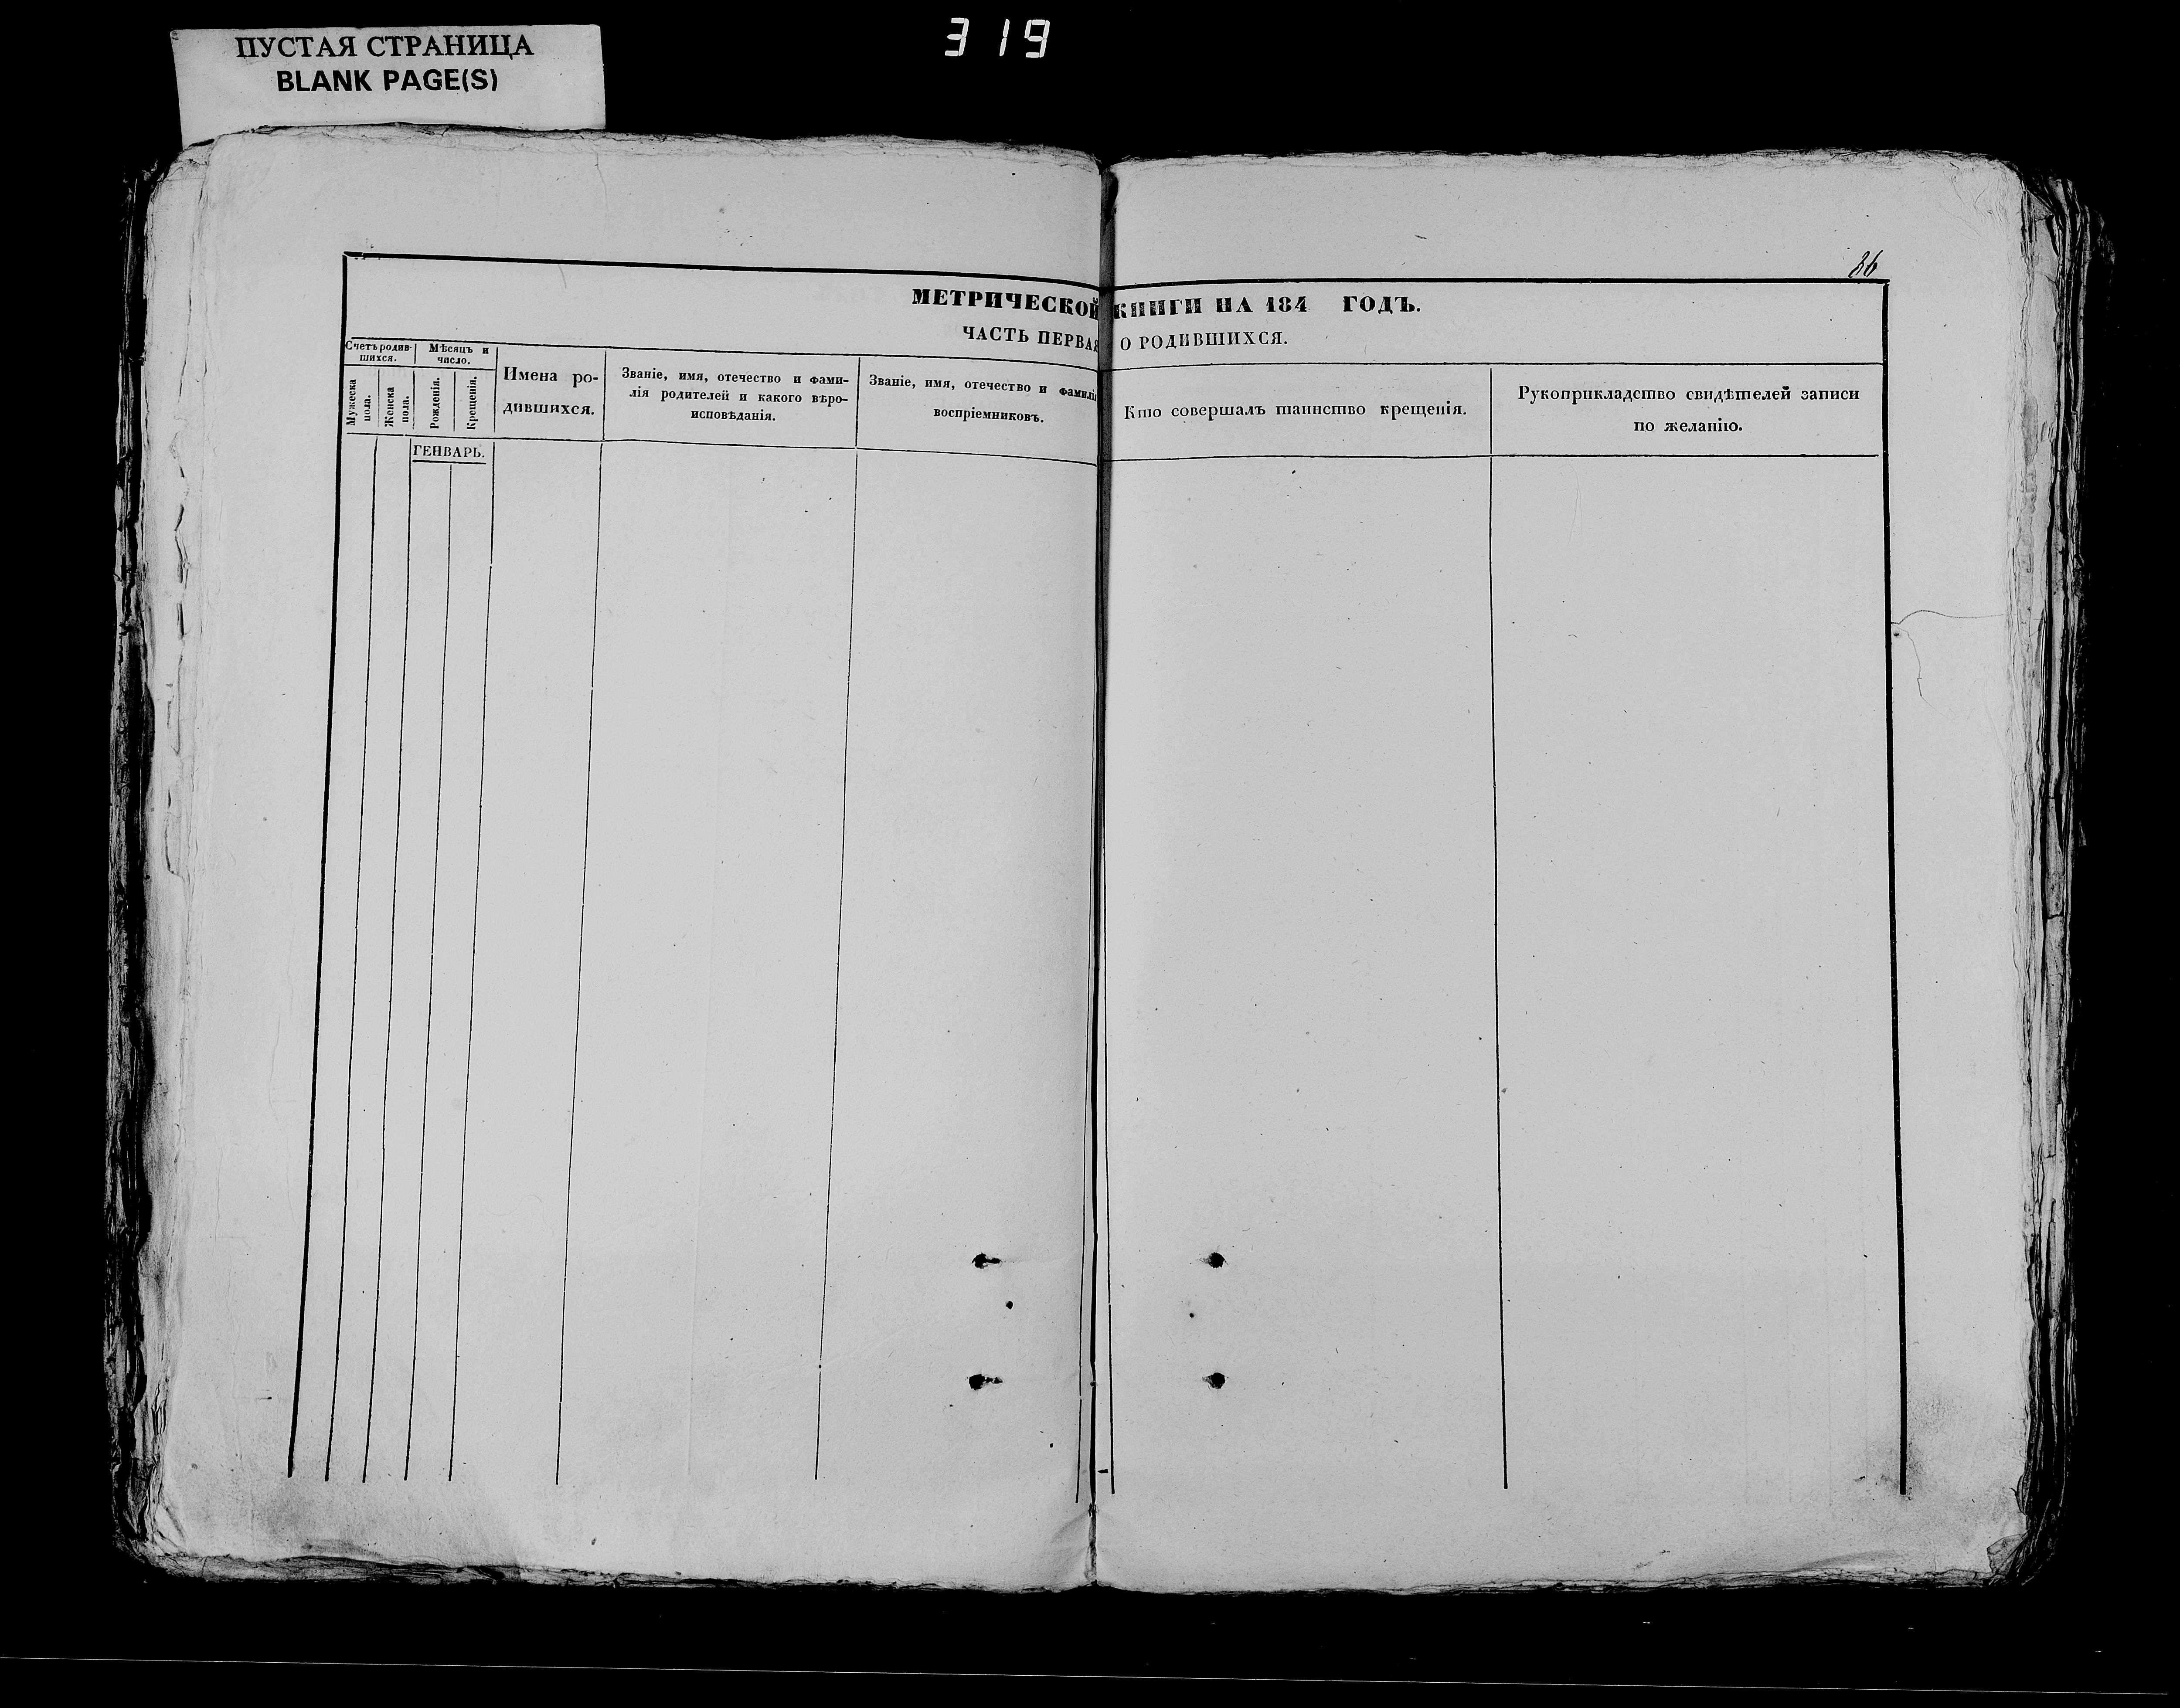 319
ПУСТАЯ СТРАНИЦА
BLANK PAGE(S)
86
МЕТРИЧЕСКОЙ КНИГИ НА 184 ГОДЪ.
ЧАСТЬ ПЕРВАЯ О РОДИВШИХСЯ.
Счетъ родив-
шихся.
Мѣсяцъ и
число.
Мужеска
пола.
Женска
пола.
Рожденія.
Крещенія.
Имена ро-
дившихся.
Званіе, имя, отечество и фами-
лія родителей и какого вѣро-
исповѣданія.
Званіе, имя, отечество и фамилія
воспріемниковъ.
Кто совершалъ таинство крещенія.
Рукоприкладство свидѣтелей записи
по желанію.
ГЕНВАРЬ.